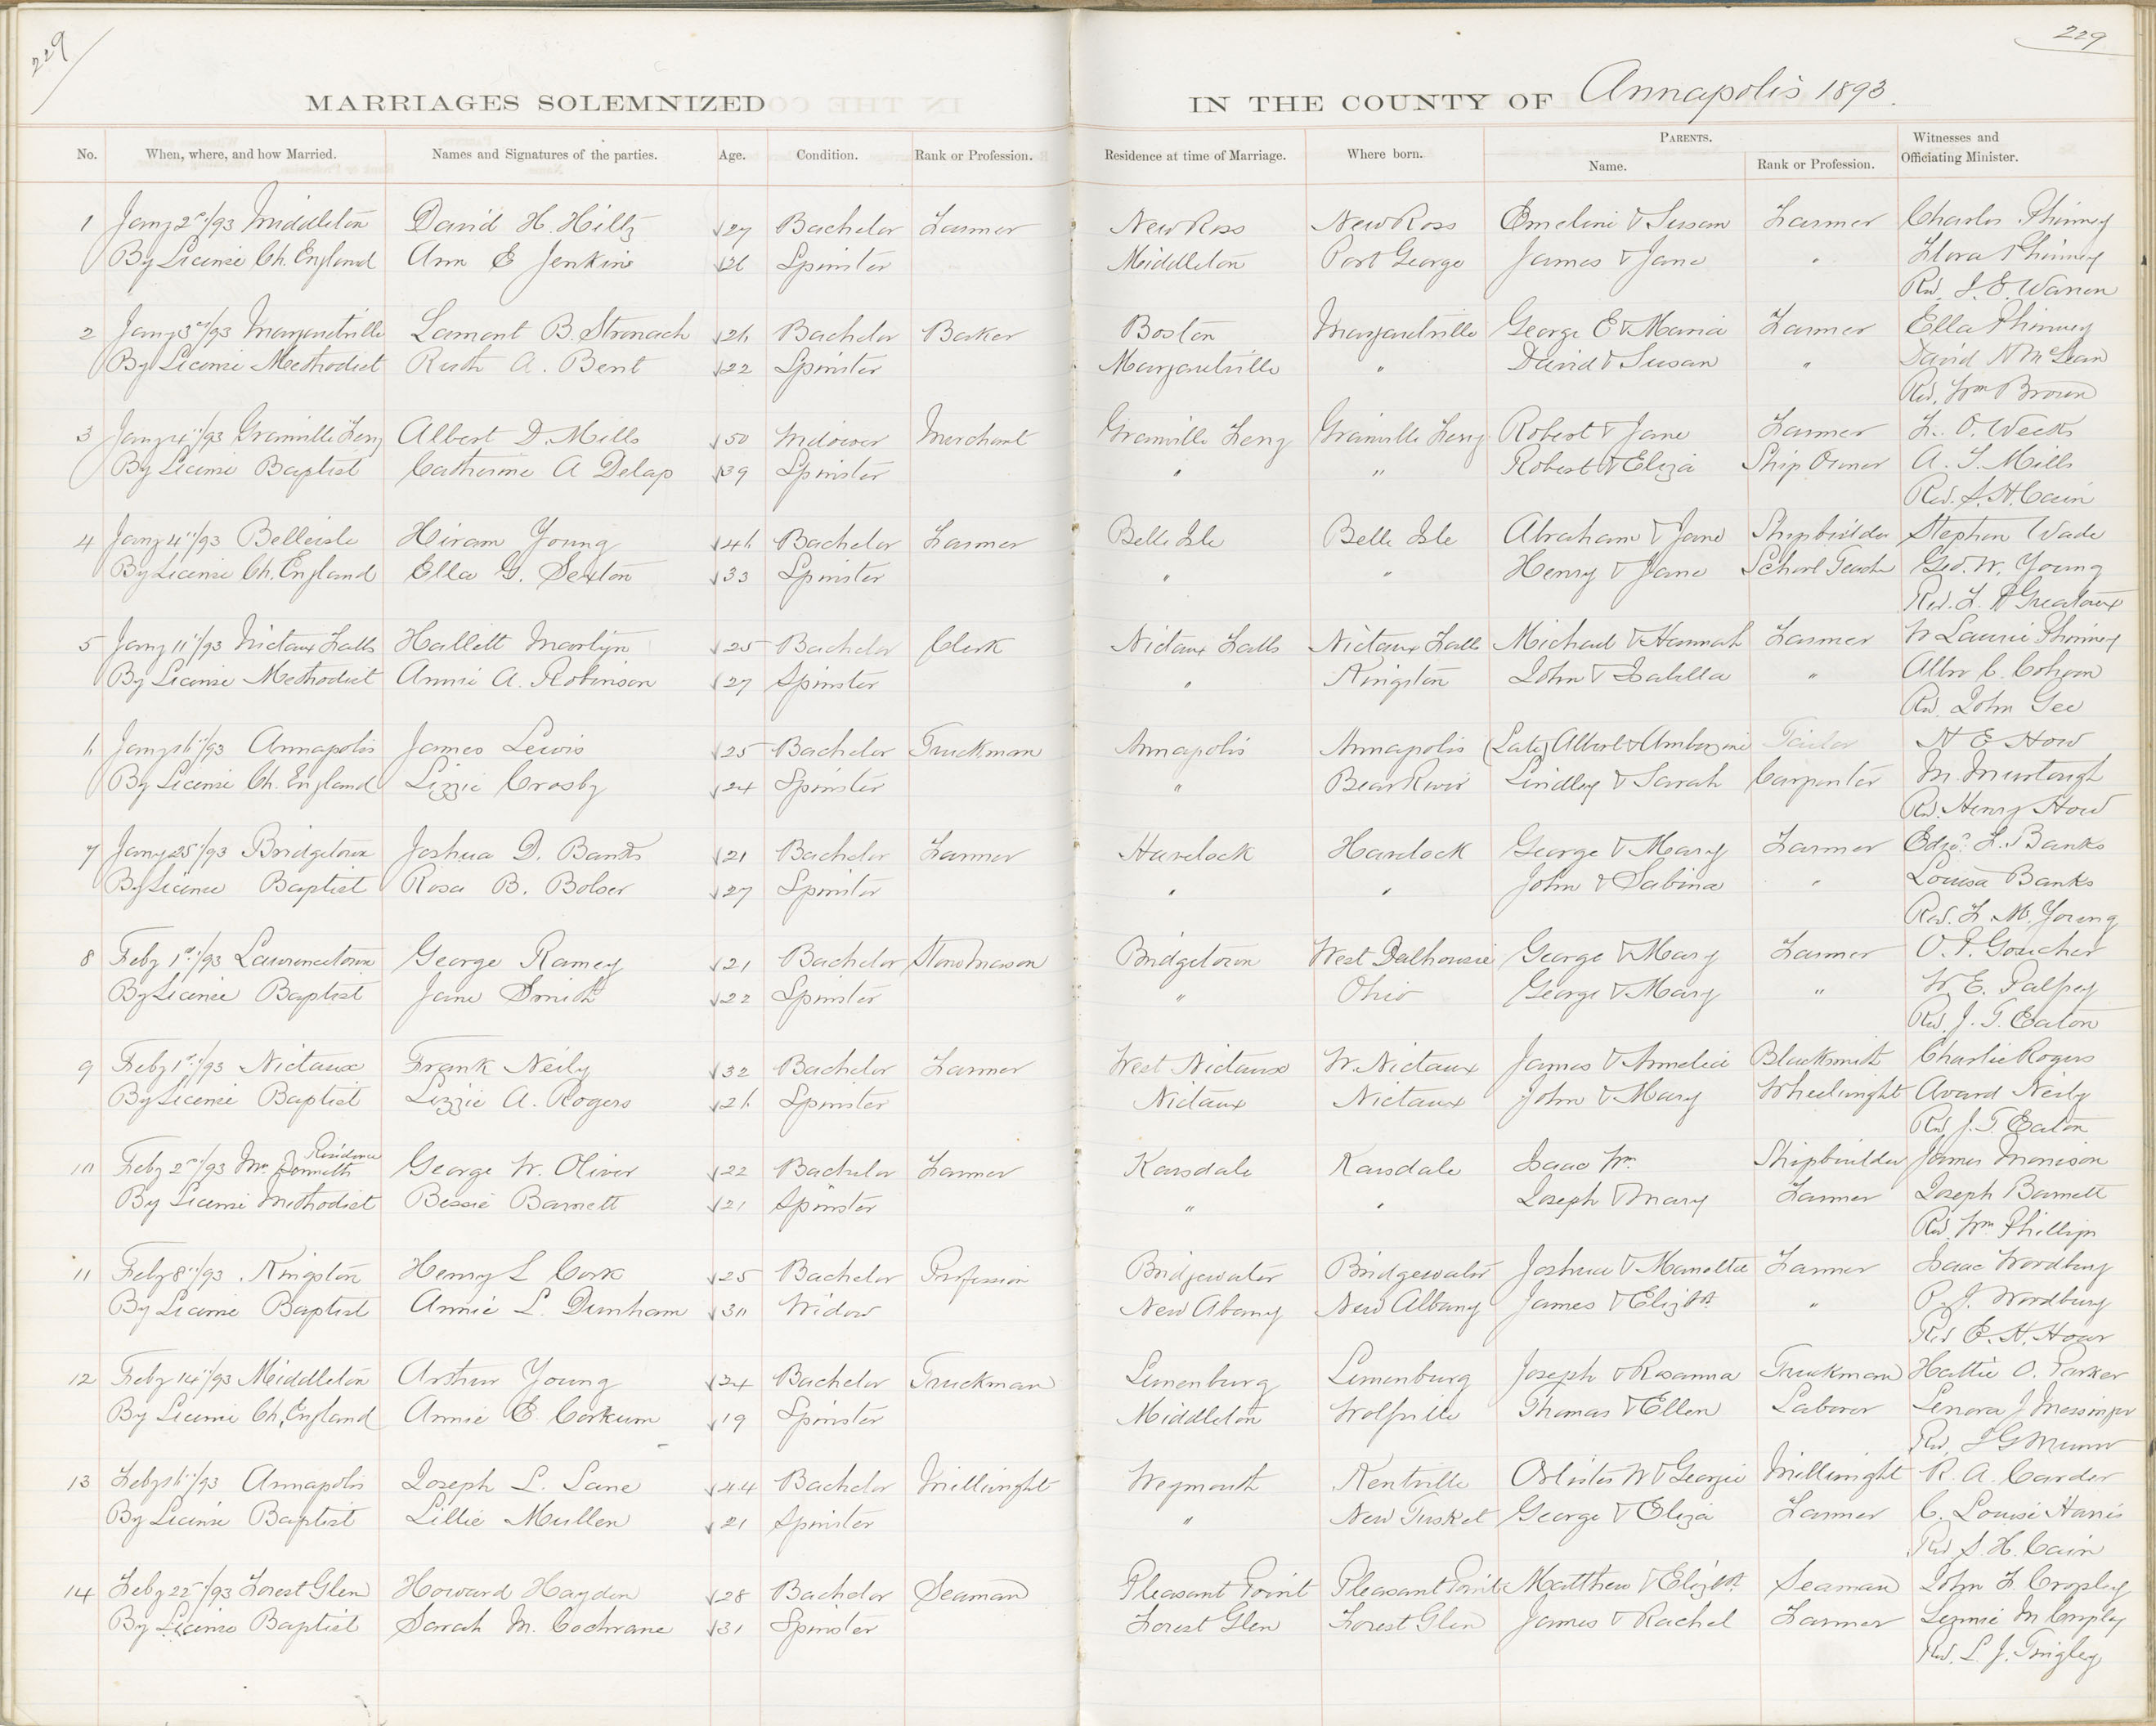 229
229
MARRIAGES SOLEMNIZED IN THE COUNTY OF Annapolis 1893.
No. When, where, and how Married. Names and Signatures of the parties. Age. Condition. Rank or Profession. Residence at time of Marriage. Where born. PARENTS. Name. Rank or Profession. Witnesses and Officiating Minister.
1 Jany 2nd/93 Middleton David H. Hiltz 27 Bachelor Farmer New Ross New Ross Emeline & Susan Farmer Charles Phinney
By License Ch. England Ann E Jenkins 26 Spinster Middleton Port George James & Jane " Flora Phinney
Rev. J. E. Warren
2 Jany 3rd/93 Margaretville Lamont B. Stronach 26 Bachelor Baker Boston Margaretville George E & Maria Farmer Ella Phinney
By License Methodist Ruth A. Bent 22 Spinster Margaretville " David & Susan " David N McLean
Rev. Wm Brown
3 Jany 4"/93 Granville Ferry Albert D. Mills 50 Widower Merchant Granville Ferry Granville Ferry Robert & Jane Farmer L. O. Weeks
By License Baptist Catherine A Delap 39 Spinster " " Robert & Eliza Ship Owner A. T. Mills
Rev. S. H. Cain
4 Jany 4"/93 Belleisle Hiram Young 46 Bachelor Farmer Belle Isle Belle Isle Abraham & Jane Shipbuilder Stephen Wade
By License Ch. England Ella G. Sexton 33 Spinster " " Henry & Jane School Teacher Geo. W. Young
Rev. F. P Greatorex
5 Jany 11"/93 Nictaux Falls Hallett Martyn 25 Bachelor Clerk Nictaux Falls Nictaux Falls Michael & Hannah Farmer W Laurie Phinney
By License Methodist Annie A. Robinson 27 Spinster " Kingston John & Isabella " C.
Rev. John Gee
6 Jany 16"/93 Annapolis James Lewis 25 Bachelor Truckman Annapolis Annapolis (Late) Albert & Ambrozine Tailor H E How
By License Ch. England Lizzie Crosby 24 Spinster " Bear River Lindley & Sarah Carpenter M. Murtaugh
Rev. Henry How
7 Jany 25"/93 Bridgetown Joshua D. Banks 21 Bachelor Farmer Havelock Havelock George & Mary Farmer L. Banks
By License Baptist Rosa B. Bolser 27 Spinster " " John & Sabina " Louisa Banks
Rev. F. M. Young
8 Feby 1st/93 Lawrencetown George Ramey 21 Bachelor Stone Mason Bridgetown West Dalhousie George & Mary Farmer O. P. Goucher
By License Baptist Jane Smith 22 Spinster " Ohio George & Mary " W. E. Palfrey
Rev. J. T. Eaton
9 Feby 1st/93 Nictaux Frank Neily 32 Bachelor Farmer West Nictaux W. Nictaux James & Amelia Blacksmith Charlie Rogers
By License Baptist Lizzie A. Rogers 26 Spinster Nictaux Nictaux John & Mary Wheelwright Avard Neily
Rev J. T. Eaton
Residence
10 Feby 2nd/93 Mr. George W. Oliver 22 Bachelor Farmer Karsdale Karsdale Isaac Wm. Shipbuilder James Morrison
By License Methodist Bessie Barnett 21 Spinster " " Joseph & Mary Farmer Joseph Barnett
Rev Wm Phillips
11 Feby 8"/93 Kingston Henry L Cork 25 Bachelor Profession Bridgewater Bridgewater Joshua & Manetta Farmer Isaac Woodbury
By License Baptist Annie L. Dunham 30 Widow New Abany New Albany James & Elizbth " P. J. Woodbury
Rev E. H. Howe
12 Feby 14"/93 Middleton Arthur Young 24 Bachelor Truckman Lunenburg Lunenburg Joseph & Rosanna Truckman Hattie O. Parker
By License Ch. England Annie E. Corkum 19 Spinster Middleton Wolfville Thomas & Ellen Laborer Lenora J Messinger
Rev.
13 Feby 16"/93 Annapolis Joseph L. Lane 44 Bachelor Millwright Weymouth Kentville W & Georgie Millwright R. A. Carder
By License Baptist Lillie Mullen 21 Spinster " New Tusket George & Eliza Farmer C. Louise Harris
Rev S. H. Cain
14 Feby 22"/93 Forest Glen Howard Hayden 28 Bachelor Seaman Pleasant Point Pleasant Point Matthew & Elizbth Seaman John F. Cropley
By License Baptist Sarah M. Cochrane 31 Spinster Forest Glen Forest Glen James & Rachel Farmer M Cropley
Rev. L. J. Tingley